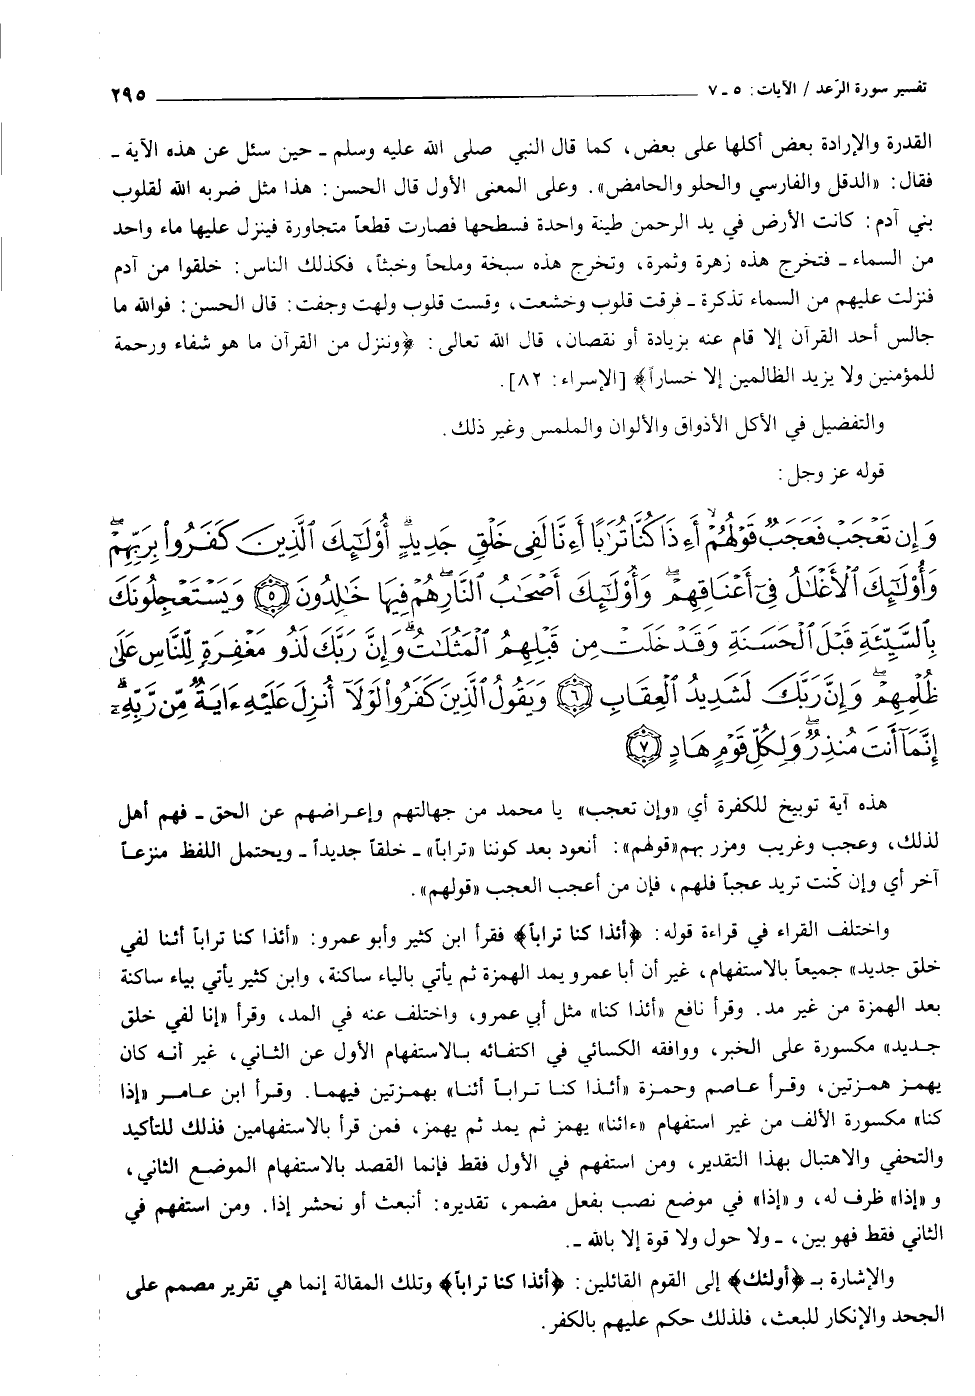 تفسير سورة الرّعد / الآيات: ٥ ـ ٧ ٢٩٥
القدرة والإرادة بعض أكلها على بعض، كما قال النبي صلى الله عليه وسلم ـ حين سئل عن هذه الآية ـ
فقال: «الدقل والفارسي والحلو والحامض». وعلى المعنى الأول قال الحسن: هذا مثل ضربه الله لقلوب
بني آدم: كانت الأرض في يد الرحمن طينة واحدة فسطحها فصارت قطعاً متجاورة فينزل عليها ماء واحد
من السماء ـ فتخرج هذه زهرة وثمرة، وتخرج هذه سبخة وملحاً وخبثاً، فكذلك الناس: خلقوا من آدم
فنزلت عليهم من السماء تذكرة ـ فرقت قلوب وخشعت، وقست قلوب ولهت وجفت: قال الحسن: فوالله ما
جالس أحد القرآن إلا قام عنه بزيادة أو نقصان، قال الله تعالى: ﴿وننزل من القرآن ما هو شفاء ورحمة
للمؤمنين ولا يزيد الظالمين إلا خساراً﴾ [الإسراء: ٨٢].
والتفضيل في الأكل الأذواق والألوان والملمس وغير ذلك.
قوله عز وجل:
وَإِن تَعْجَبْ فَعَجَبٌ قَوْلُهُمْ أَءِذَا كُنَّا تُرَابًا أَءِنَّا لَفِى خَلْقٍ جَدِيدٍ أُوْلَٰٓئِكَ ٱلَّذِينَ كَفَرُوا۟ بِرَبِّهِمْ
وَأُوْلَٰٓئِكَ ٱلْأَغْلَٰلُ فِىٓ أَعْنَاقِهِمْ وَأُوْلَٰٓئِكَ أَصْحَٰبُ ٱلنَّارِ هُمْ فِيهَا خَٰلِدُونَ ﴿٥﴾ وَيَسْتَعْجِلُونَكَ
بِٱلسَّيِّئَةِ قَبْلَ ٱلْحَسَنَةِ وَقَدْ خَلَتْ مِن قَبْلِهِمُ ٱلْمَثُلَٰتُ وَإِنَّ رَبَّكَ لَذُو مَغْفِرَةٍ لِّلنَّاسِ عَلَىٰ
ظُلْمِهِمْ وَإِنَّ رَبَّكَ لَشَدِيدُ ٱلْعِقَابِ ﴿٦﴾ وَيَقُولُ ٱلَّذِينَ كَفَرُوا۟ لَوْلَآ أُنزِلَ عَلَيْهِ ءَايَةٌ مِّن رَّبِّهِۦٓ
إِنَّمَآ أَنتَ مُنذِرٌ وَلِكُلِّ قَوْمٍ هَادٍ ﴿٧﴾
هذه آية توبيخ للكفرة أي «وإن تعجب» يا محمد من جهالتهم وإعراضهم عن الحق ـ فهم أهل
لذلك، وعجب وغريب ومزر بهم«قولهم»: أنعود بعد كوننا «تراباً» ـ خلقاً جديداً ـ ويحتمل اللفظ منزعاً
آخر أي وإن كنت تريد عجباً فلهم، فإن من أعجب العجب «قولهم».
واختلف القراء في قراءة قوله: ﴿أئذا كنا تراباً﴾ فقرأ ابن كثير وأبو عمرو: «أئذا كنا تراباً أئنا لفي
خلق جديد» جميعاً بالاستفهام، غير أن أبا عمرو يمد الهمزة ثم يأتي بالياء ساكنة، وابن كثير يأتي بياء ساكنة
بعد الهمزة من غير مد. وقرأ نافع «أئذا كنا» مثل أبي عمرو، واختلف عنه في المد، وقرأ «إنا لفي خلق
جديد» مكسورة على الخبر، ووافقه الكسائي في اكتفائه بالاستفهام الأول عن الثاني، غير أنه كان
يهمز همزتين، وقرأ عاصم وحمزة «أئذا كنا تراباً أئنا» بهمزتين فيهما. وقرأ ابن عامر «إذا
كنا» مكسورة الألف من غير استفهام «ءائنا» يهمز ثم يمد ثم يهمز، فمن قرأ بالاستفهامين فذلك للتأكيد
والتحفي والاهتبال بهذا التقدير، ومن استفهم في الأول فقط فإنما القصد بالاستفهام الموضع الثاني،
و «إذا» ظرف له، و «إذا» في موضع نصب بفعل مضمر، تقديره: أنبعث أو نحشر إذا. ومن استفهم في
الثاني فقط فهو بين، ـ ولا حول ولا قوة إلا بالله ـ.
والإشارة بـ ﴿أولئك﴾ إلى القوم القائلين: ﴿أئذا كنا تراباً﴾ وتلك المقالة إنما هي تقرير مصمم على
الجحد والإنكار للبعث، فلذلك حكم عليهم بالكفر.